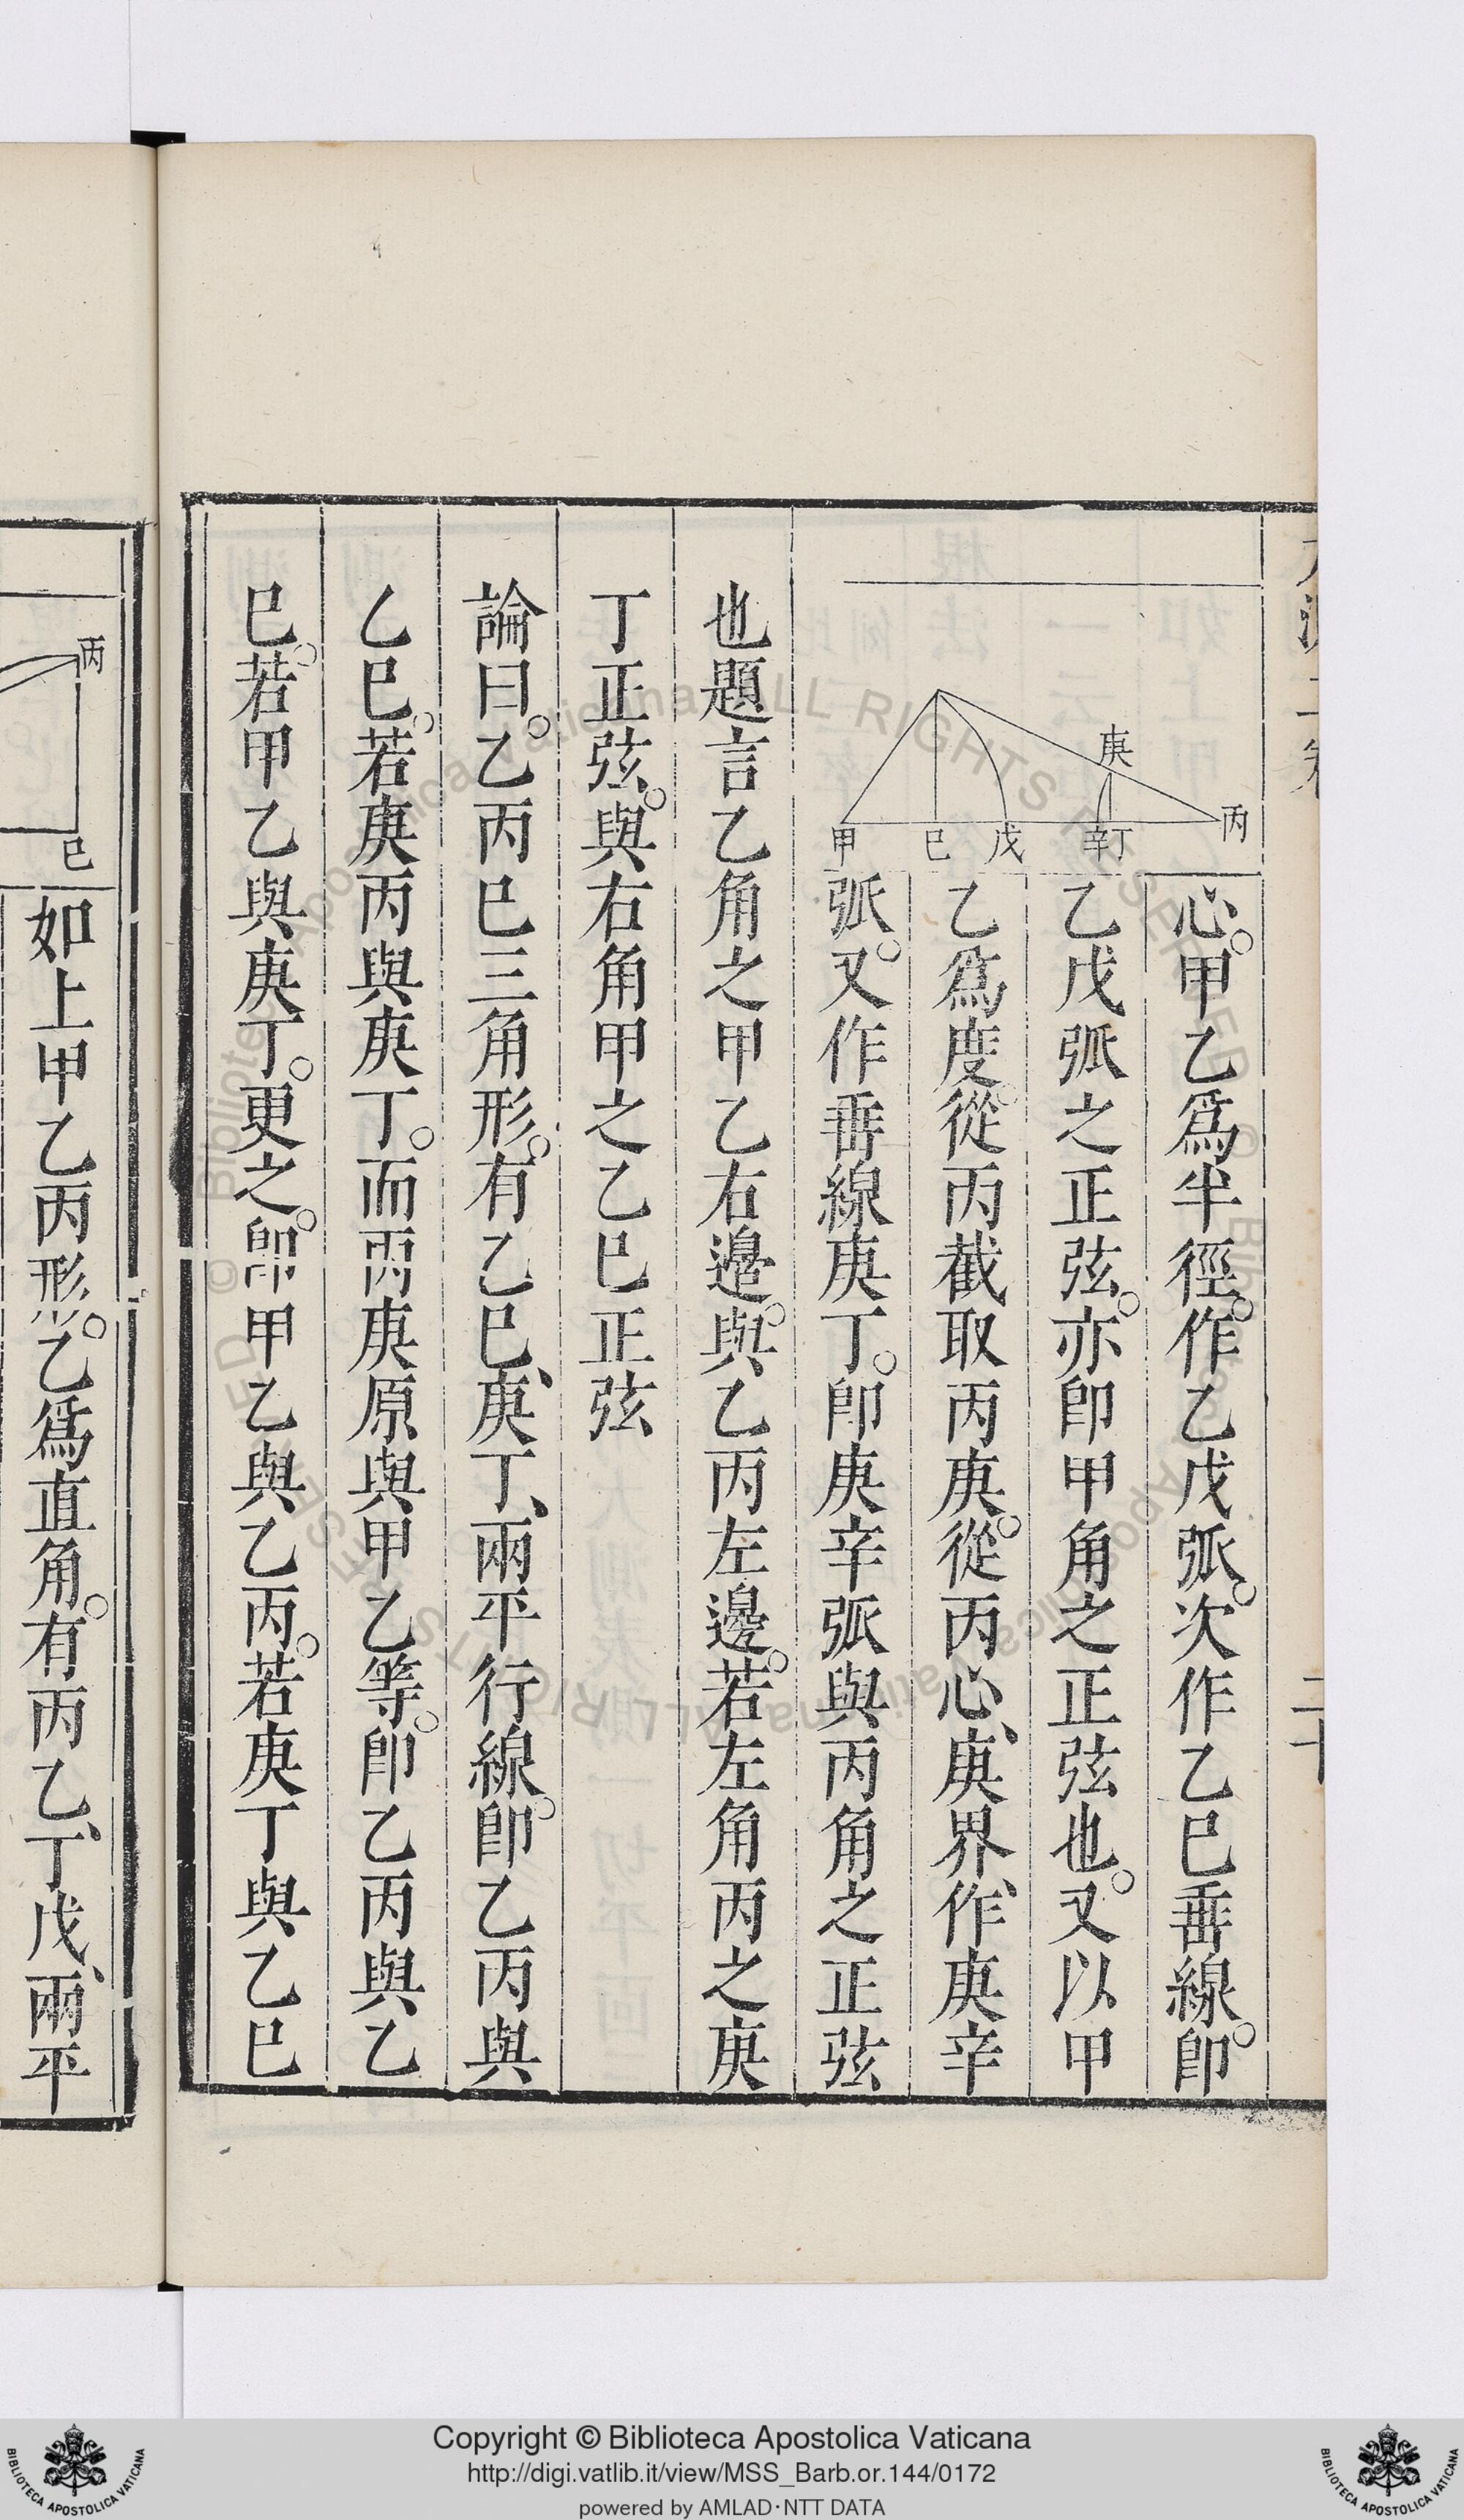 心。甲乙爲半徑。作乙戊弧。次作乙巳垂線。卽
乙戊弧之正弦。亦卽甲角之正弦也。又以甲
乙爲度。從丙截取丙庚。從丙心、庚界、作庚辛
弧。又作垂線庚丁。卽庚辛弧與丙角之正弦
庚
丙
甲 巳 戊 辛 丁
也題言乙角之甲乙右邊。與乙丙左邊。若左角丙之庚
丁正弦。與右角甲之乙巳正弦
論曰。乙丙巳三角形。有乙巳、庚丁、兩平行線。卽乙丙與
乙巳。若庚丙與庚丁。而丙庚原與甲乙等。卽乙丙與乙
巳。若甲乙與庚丁。更之。卽甲乙與乙丙。若庚丁與乙巳
丙
巳
如上甲乙丙形。乙爲直角。有丙乙、丁戊、兩平
二十
Copyright © Biblioteca Apostolica Vaticana
http://digi.vatlib.it/view/MSS_Barb.or.144/0172
powered by AMLAD·NTT DATA
BIBLIOTECA APOSTOLICA VATICANA
BIBLIOTECA APOSTOLICA VATICANA